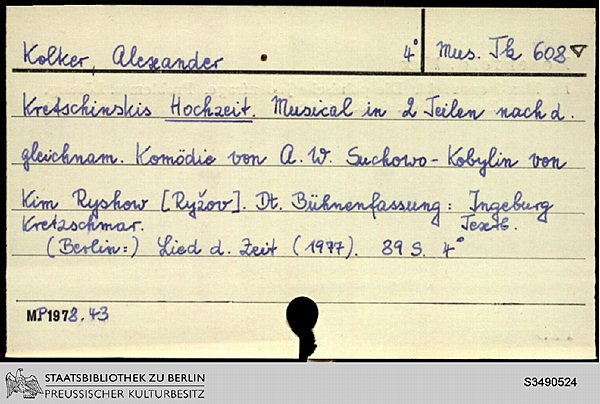 Kolker, Alexander 4° Mus. Tk 608
Kretschinskis Hochzeit. Musical in 2 Teilen nach d.
gleichnam. Komödie von A. W. Suchowo-Kobylin von
Kim Ryshow [Ryžov]. Dt. Bühnenfassung: Ingeburg
Kretzschmar. Textb.
(Berlin:) Lied d. Zeit (1977). 89 S. 4°
MP1978.43
STAATSBIBLIOTHEK ZU BERLIN
PREUSSISCHER KULTURBESITZ
S3490524